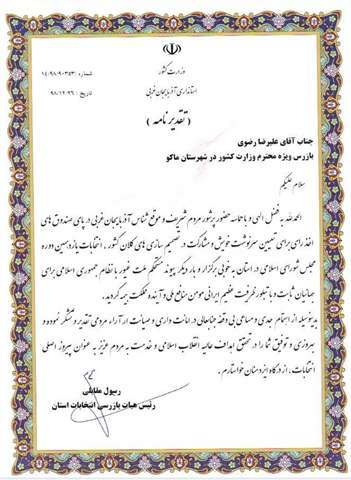 وزارت کشور
استانداری آذربایجان غربی
شماره: ۱۴/۹۸/۹۰۳۵۳
تاریخ: ۹۸/۱۲/۲۶
( تقدیر نامه )
جناب آقای علیرضا رضوی
بازرس ویژه محترم وزارت کشور در شهرستان ماکو
سلام علیکم
الحمدلله به فضل الهی و با حماسه حضور پرشور مردم شریف و موقع شناس آذربایجان غربی در پای صندوق های
اخذ رای برای تعیین سرنوشت خویش و مشارکت در تصمیم سازی های کلان کشور، انتخابات یازدهمین دوره
مجلس شورای اسلامی در استان به خوبی برگزار و بار دیگر پیوند مستحکم ملت غیور با نظام جمهوری اسلامی برای
جهانیان ثابت و با تبلور ظرفیت عظیم ایرانی مومن منافع ملی و آینده مملکت بیمه گردید.
بدینوسیله از اهتمام جدی و مساعی بی وقفه جنابعالی در امانت داری و صیانت از آراء مردمی تقدیر و تشکر نموده و
بهروزی و توفیق شما را در تحقق اهداف عالیه انقلاب اسلامی و خدمت به مردم عزیز به عنوان پیروز اصلی
انتخابات، از درگاه ایزد منان خواستارم.
رسول مقابلی
رئیس هیات بازرسی انتخابات استان